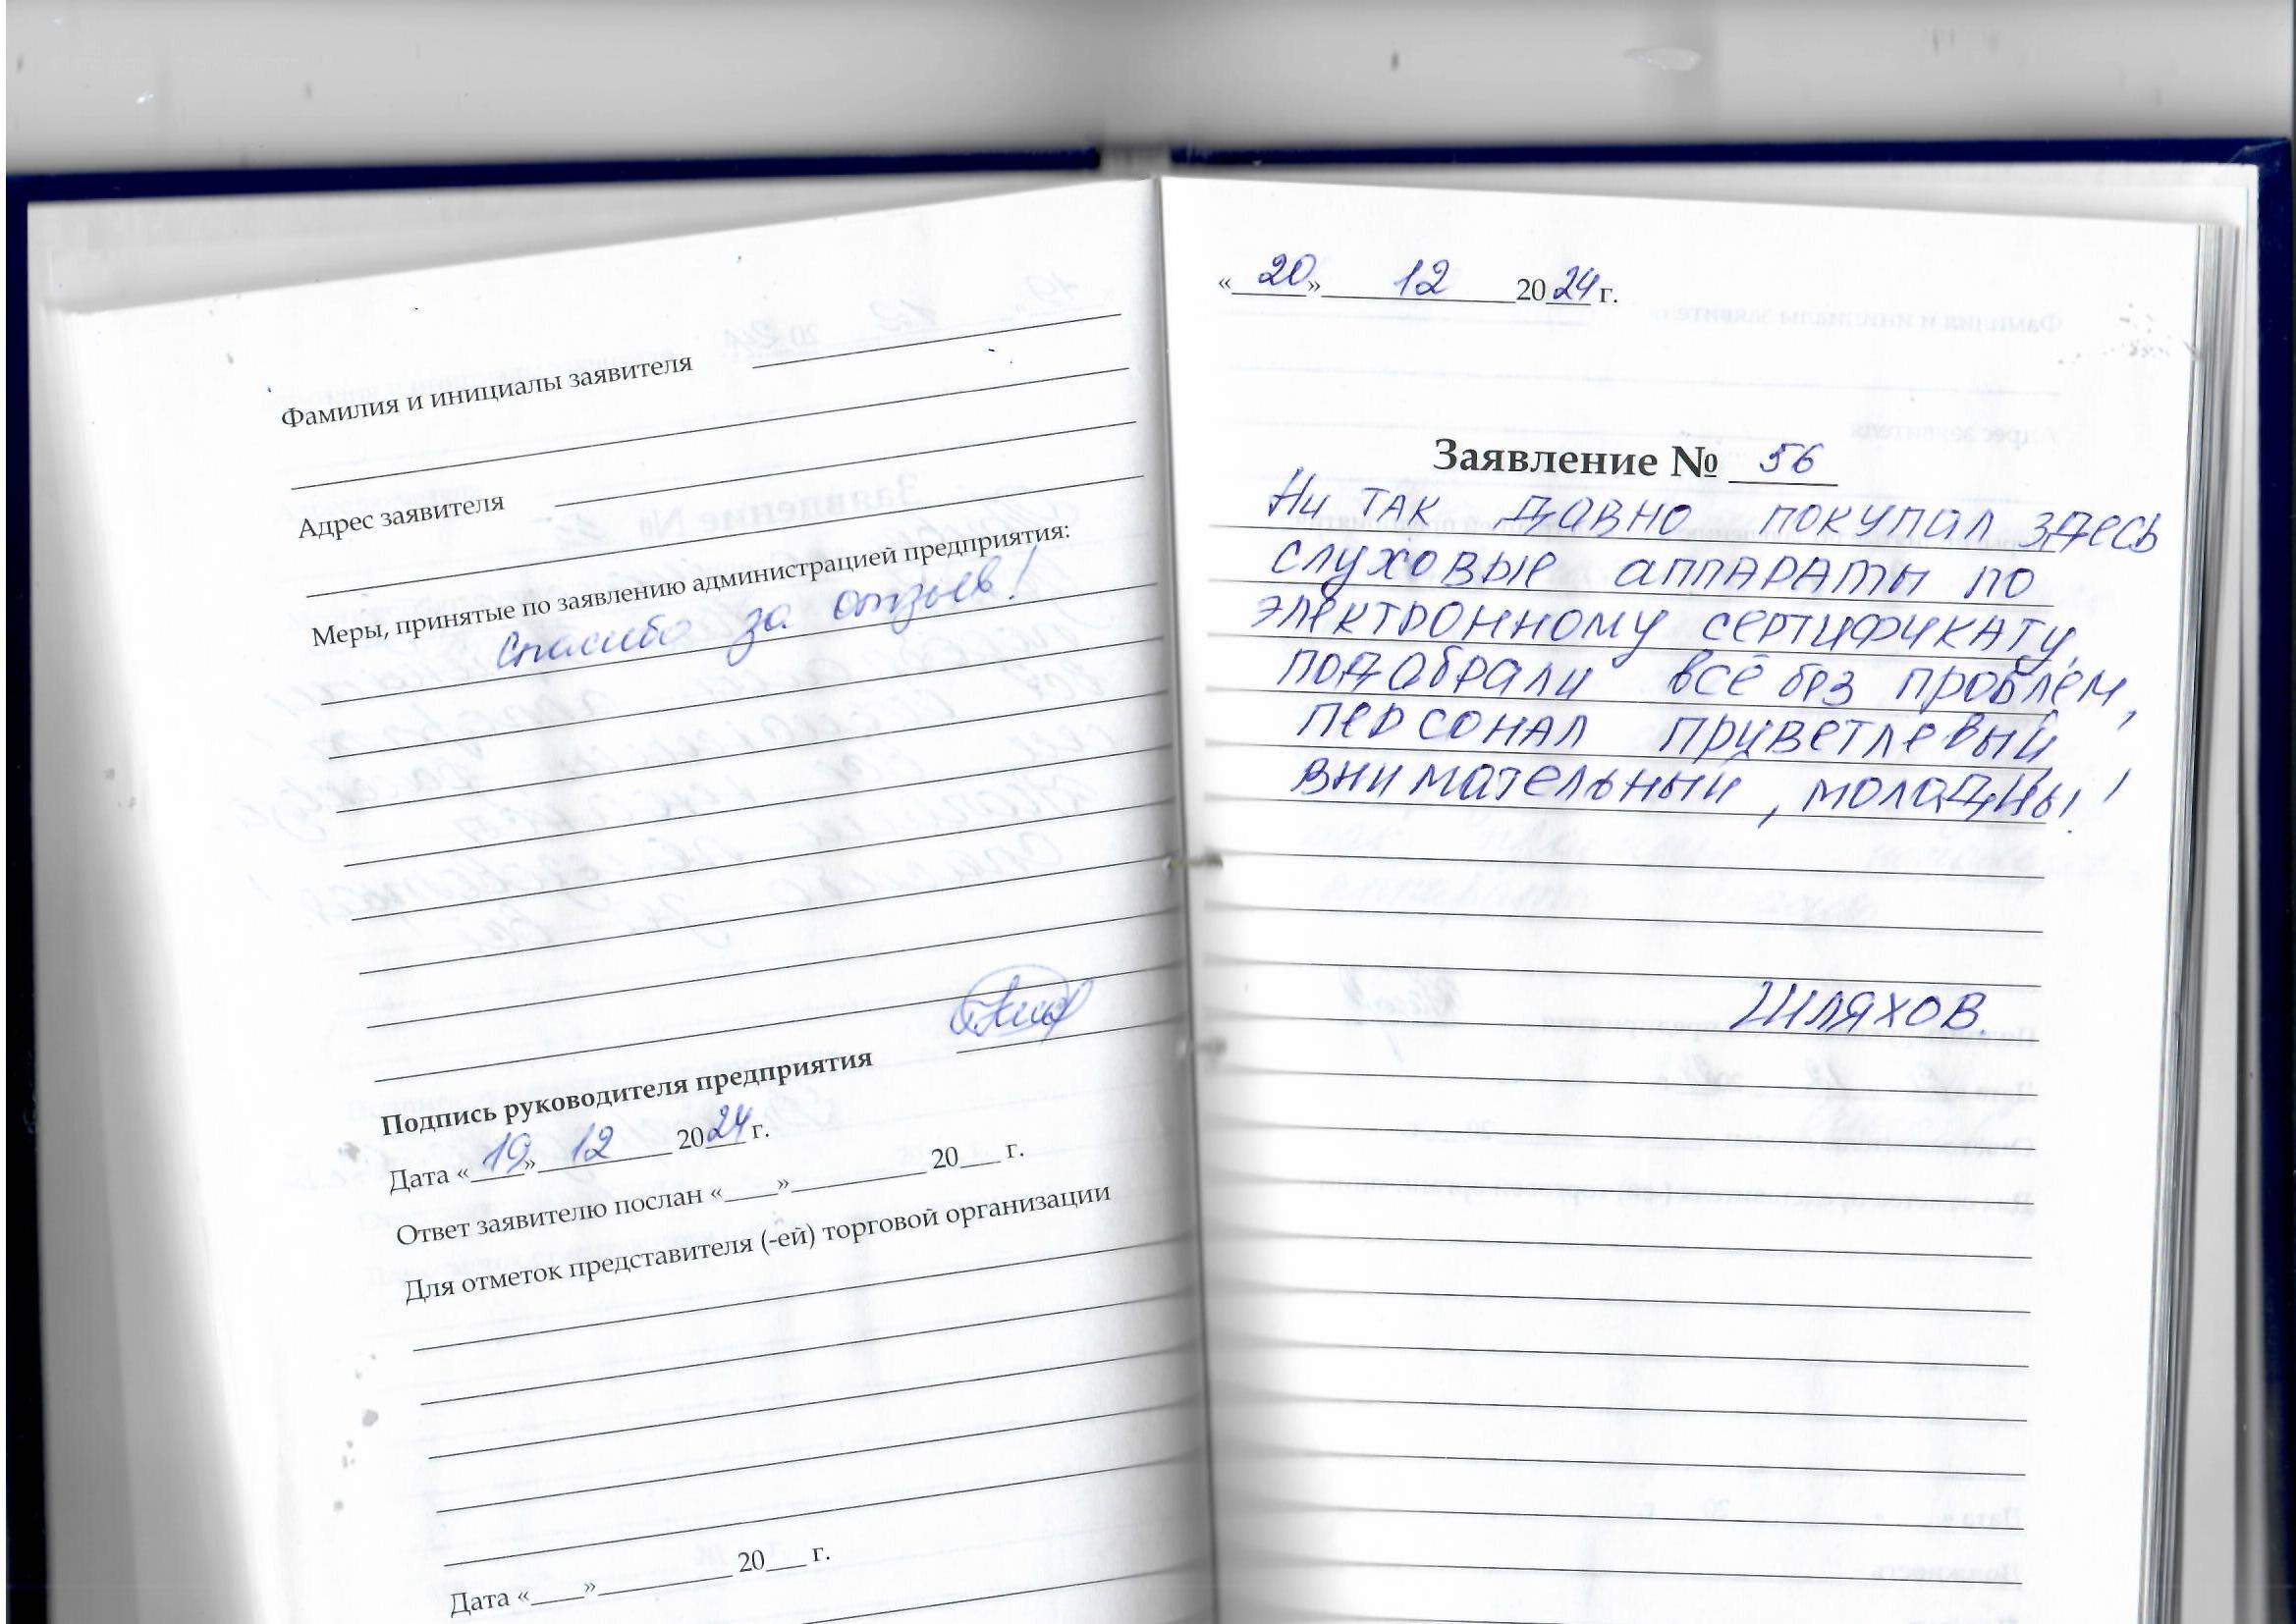 Фамилия и инициалы заявителя
Адрес заявителя
Меры, принятые по заявлению администрацией предприятия:
Спасибо за отзыв!
Подпись руководителя предприятия
Дата «19» 12 2024 г.
Ответ заявителю послан «____»__________ 20___ г.
Для отметок представителя (-ей) торговой организации
Дата «____»__________ 20___ г.
«20» 12 2024 г.
Заявление № 56
Ни так давно покупал здесь
слуховые аппараты по
электронному сертификату,
подобрали всё без проблем,
персонал приветлевый
внимательный, молодцы!
Шляхов.